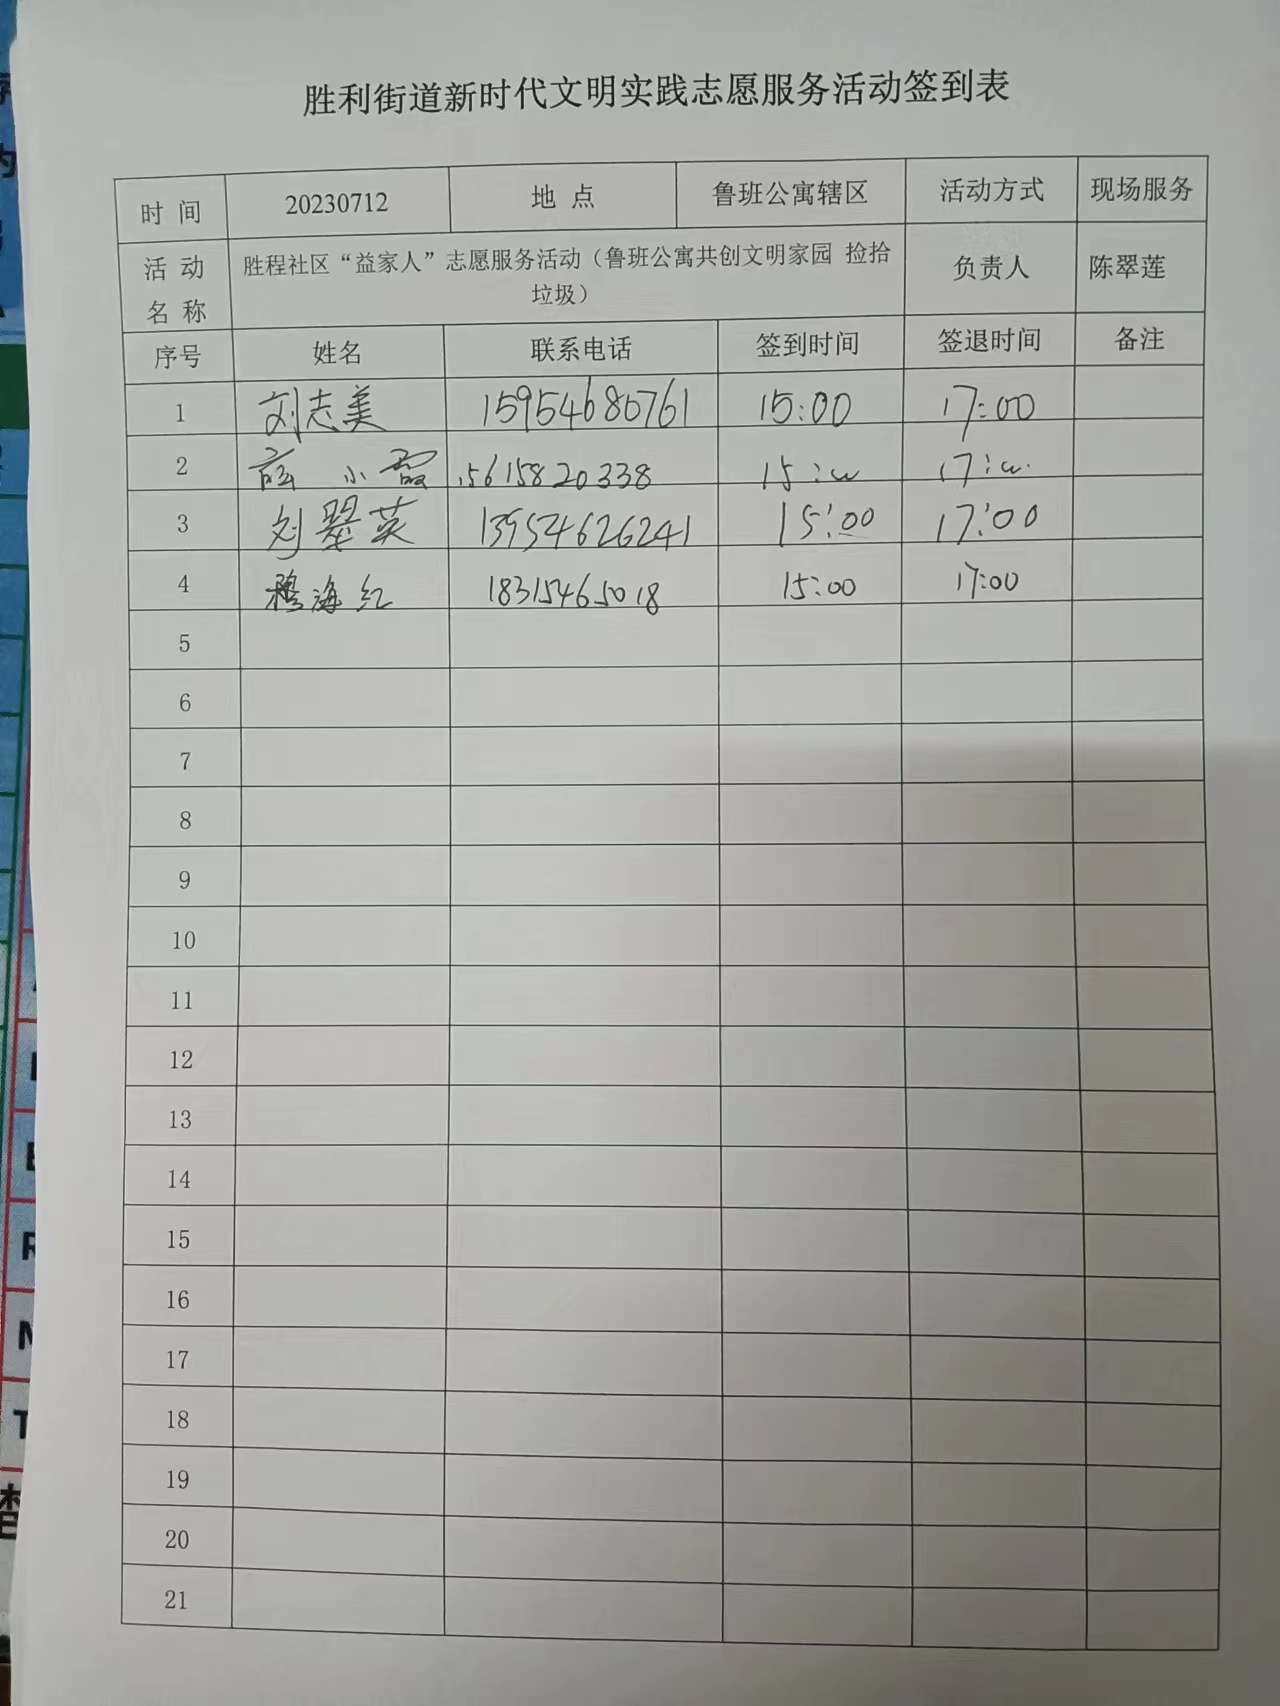 胜利街道新时代文明实践志愿服务活动签到表
时 间 20230712 地 点 鲁班公寓辖区 活动方式 现场服务
活 动 名 称 胜程社区“益家人”志愿服务活动（鲁班公寓共创文明家园 捡拾垃圾） 负责人 陈翠莲
序号 姓名 联系电话 签到时间 签退时间 备注
1 刘志美 15954680761 15:00 17:00
2 小霞 15615820338 15:00 17:00
3 刘翠英 13954626241 15:00 17:00
4 穆海红 18315465018 15:00 17:00
5
6
7
8
9
10
11
12
13
14
15
16
17
18
19
20
21